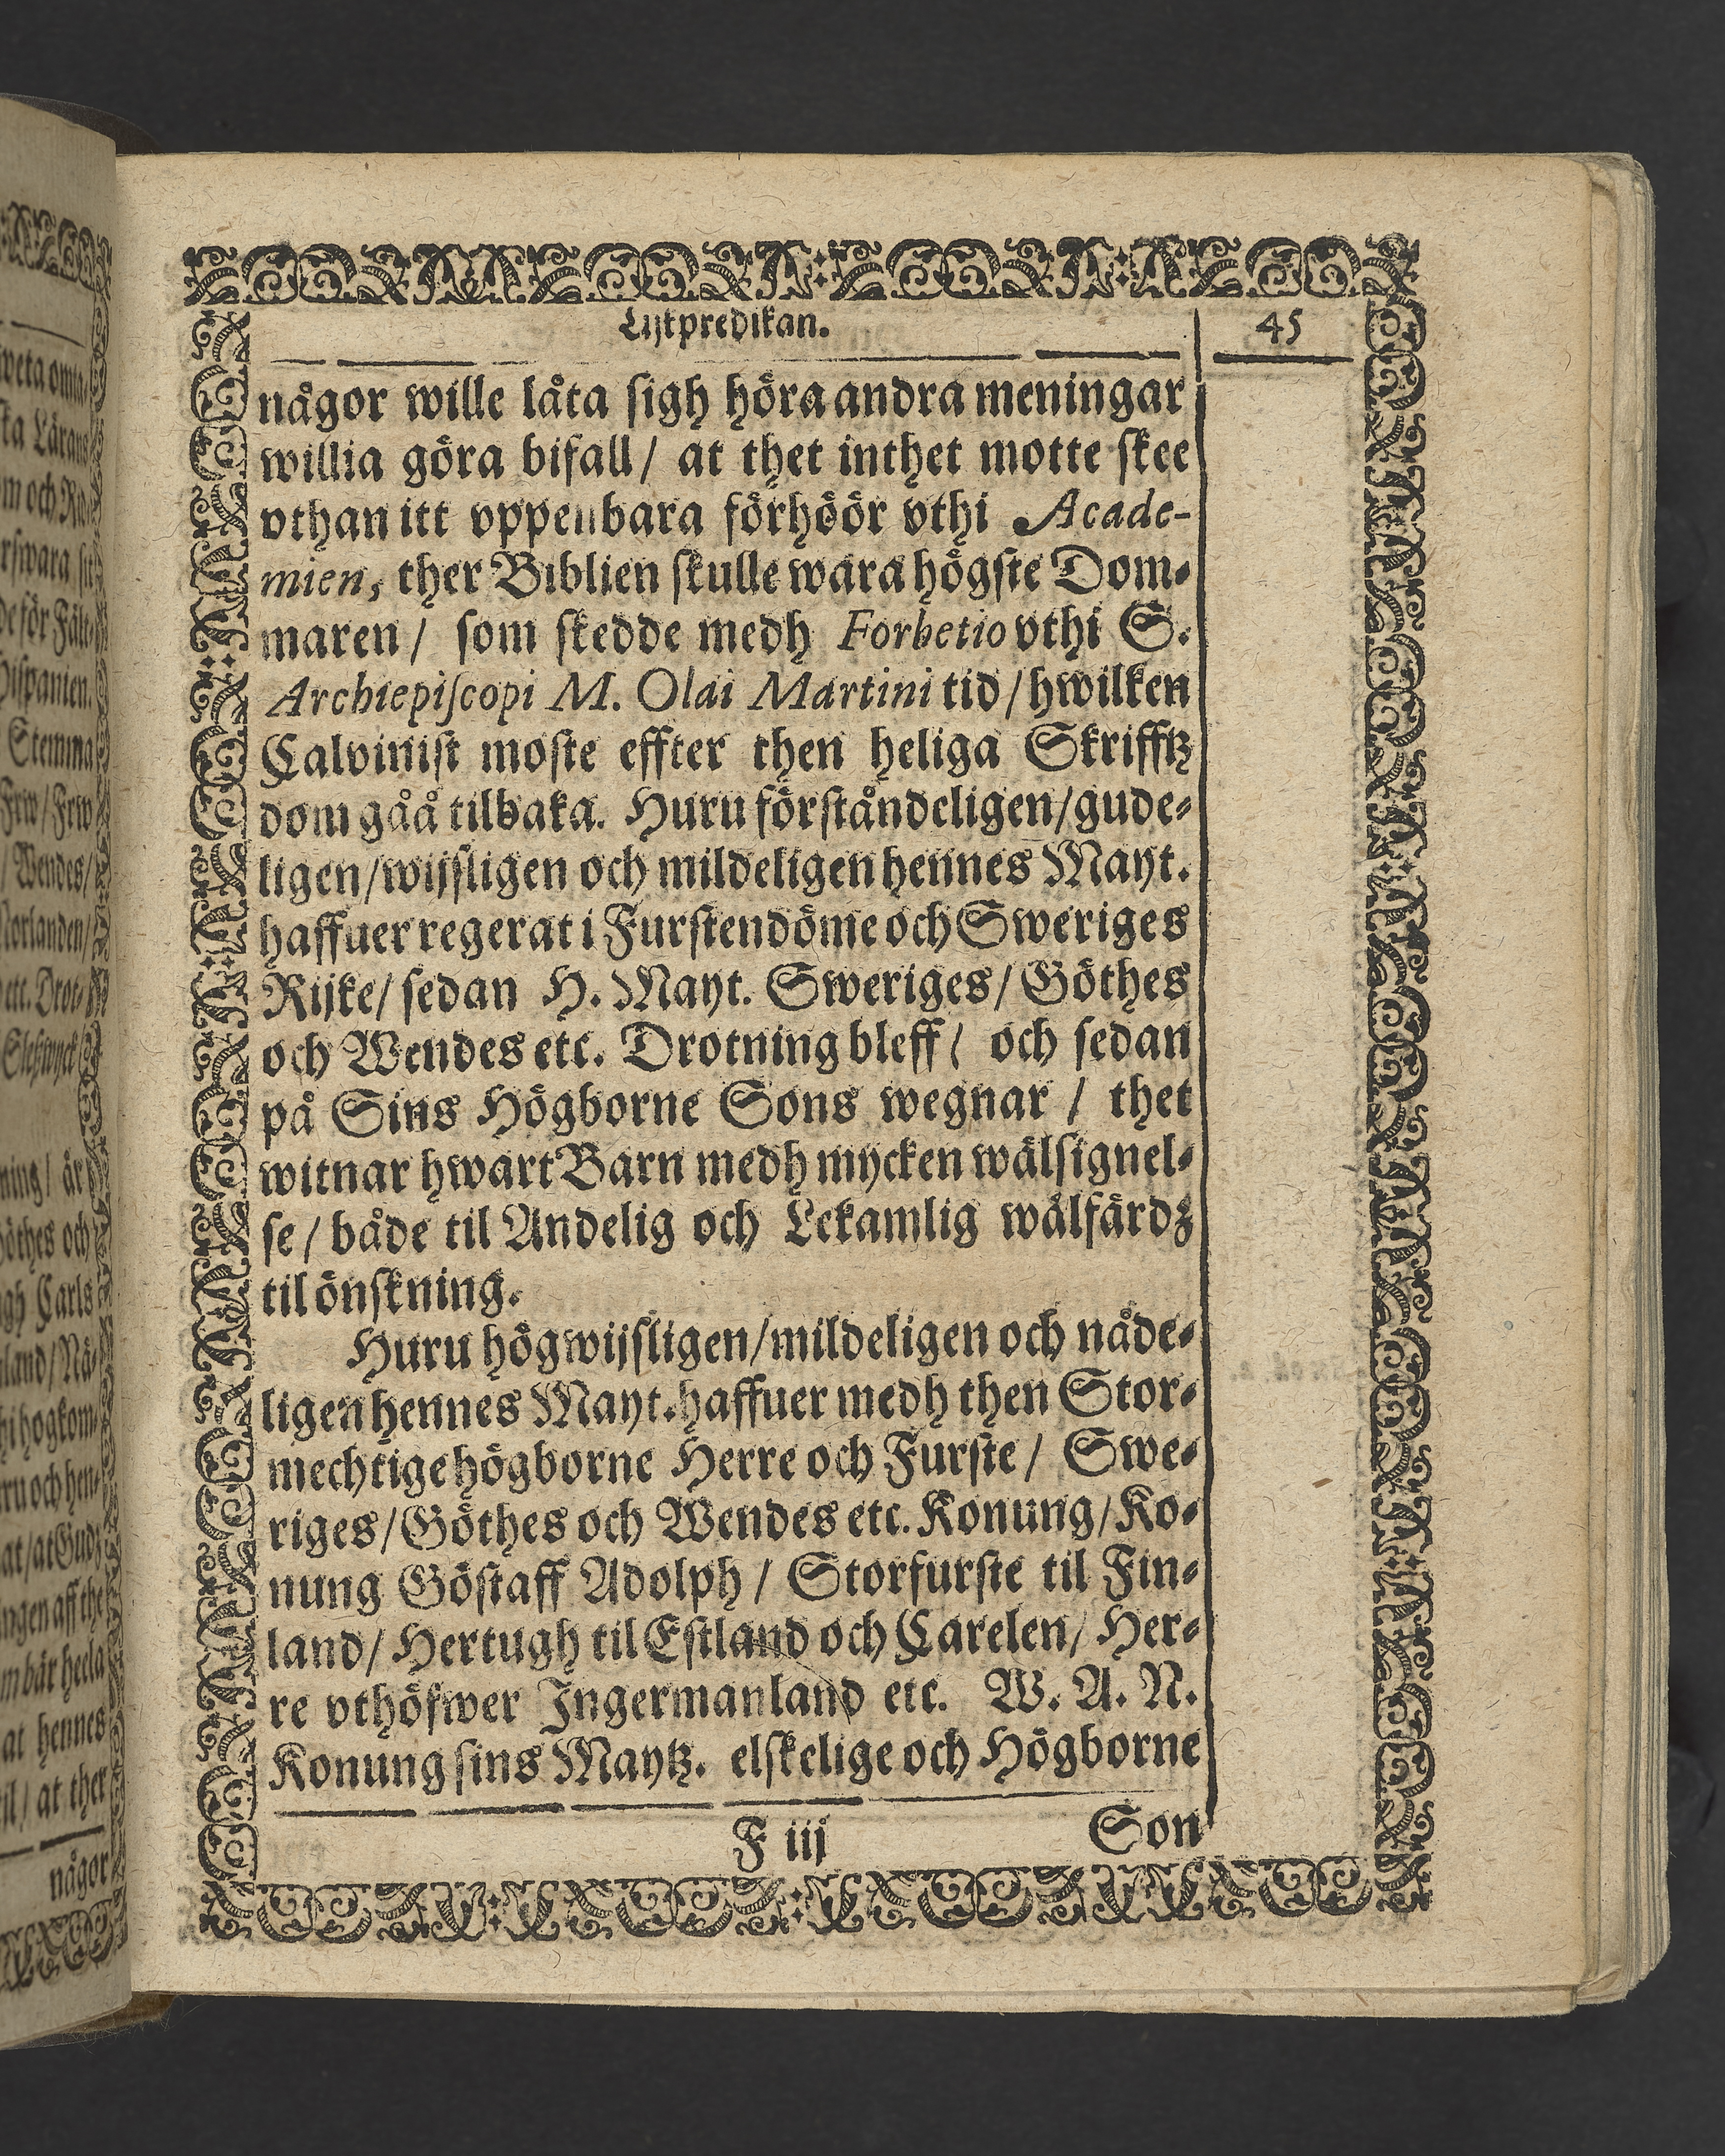 Lijkpredikan.
45
någor wille låta sigh höra andra meningar
willia göra bifall / at thet inthet motte skee
vthan itt vppenbara förhöör vthi Acade-
mien, ther Biblien skulle wara högste Dom-
maren / som skedde medh Forbetio vthi S.
Archiepiscopi M. Olai Martini tid / hwilken
Calvinist moste effter then heliga Skrifftz
dom gåå tilbaka. Huru förståndeligen / gude-
ligen / wijsligen och mildeligen hennes Mayt.
haffuer regerat i Furstendöme och Sweriges
Rijke / sedan H. Mayt. Sweriges / Göthes
och Wendes etc. Drotning bleff / och sedan
på Sins Högborne Sons wegnar / thet
witnar hwart Barn medh mycken wälsignel-
se / både til Andelig och Lekamlig wälfärdz
til önskning.
Huru högwijsligen / mildeligen och nåde-
ligen hennes Mayt. haffuer medh then Stor-
mechtige högborne Herre och Furste / Swe-
riges / Göthes och Wendes etc. Konung / Ko-
nung Göstaff Adolph / Storfurste til Fin-
land / Hertugh til Estland och Carelen / Her-
re vthöfwer Ingermanland etc. W. A. N.
Konung sins Maytz. elskelige och Högborne
F iij
Son
weta
Lärans
och
Hispanien.
Stemma
Frw / Frw
/ Wendes /
Norlanden /
etc. Drot-
ning / är
Göthes och
Carls
land / Nä-
och hen-
at / at Gudz
ingen aff the
heela
at hennes
til / at ther
någor